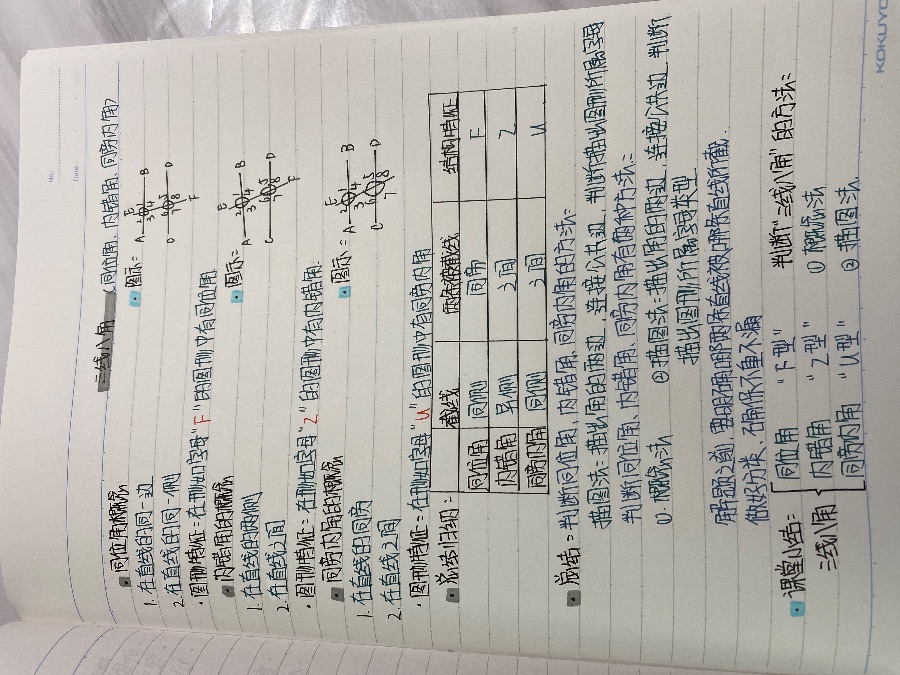 No.
Date
三线八角 (同位角、内错角、同旁内角)
同位角概念:
图示:
1. 在直线的同一边
2. 在直线的同一侧
· 图形特征:在形如字母"F"的图形中有同位角.
内错角的概念
图示:
1. 在直线的两侧
2. 在直线之间
· 图形特征:在形如字母"Z"的图形中有内错角.
同旁内角的概念
图示:
1. 在直线的同旁
2. 在直线之间
· 图形特征:在形如字母"U"的图形中有同旁内角
总结归纳:
截线 两条被截线 结构特征
同位角 同侧 同旁 F
内错角 异侧 之间 Z
同旁内角 同侧 之间 U
总结:判断同位角,内错角,同旁内角的方法:
描图法:描出角的两边,连接公共边,判断描出图形所属字母
判断同位角、内错角、同旁内角有两种方法:
①. 概念法 ②描图法:描出角的两边,连接公共边,判断
描出图形所属字母类型
解题之前,要明确哪两条直线被哪条直线所截.
做好分类、确保不重不漏
课堂小结:
三线八角
同位角 "F型"
内错角 "Z型"
同旁内角 "U型"
判断"三线八角"的方法:
① 概念法
② 描图法.
KOKUYO